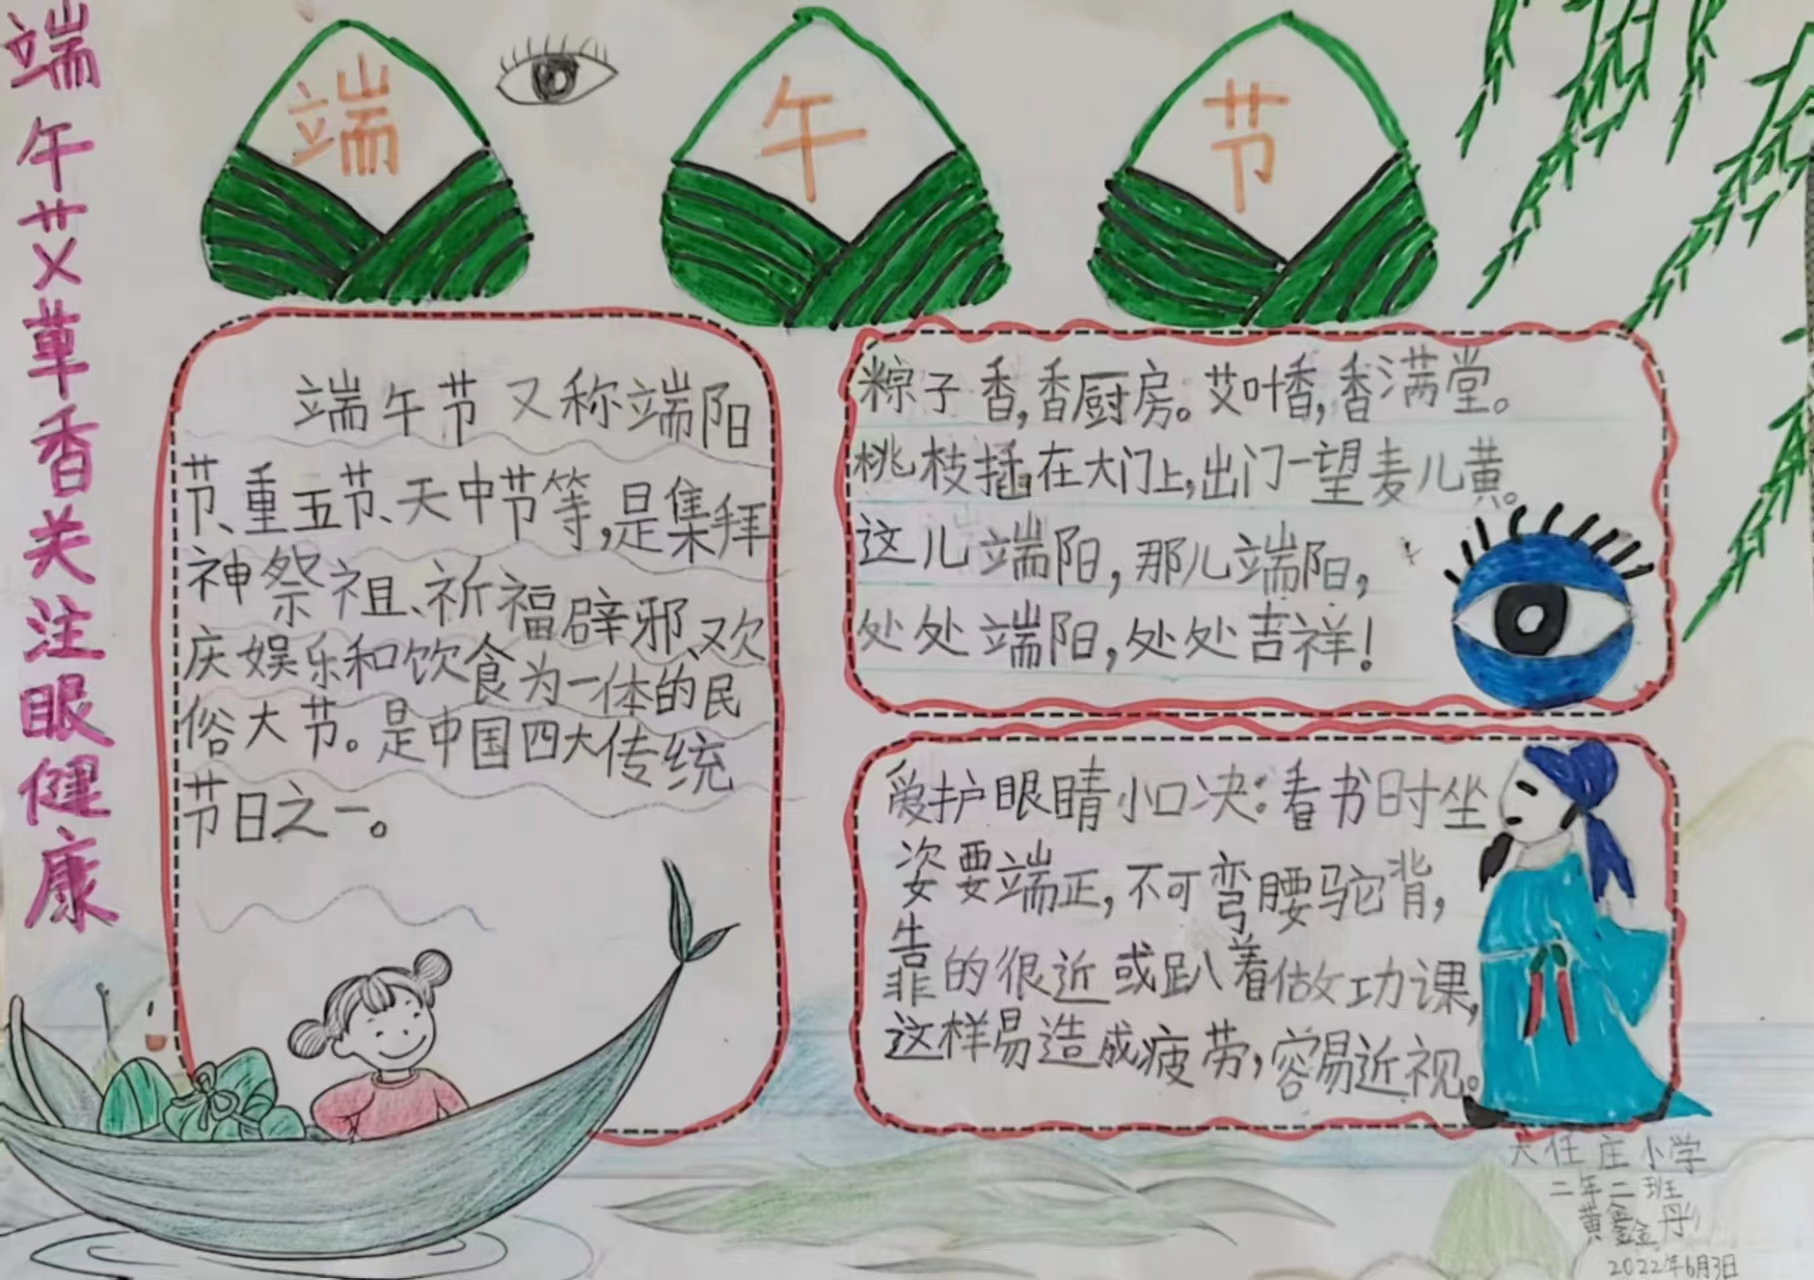 端午艾草香关注眼健康
端 午 节
端午节又称端阳
节、重五节、天中节等,是集拜
神祭祖、祈福辟邪、欢
庆娱乐和饮食为一体的民
俗大节。是中国四大传统
节日之一。
粽子香,香厨房。艾叶香,香满堂。
桃枝插在大门上,出门一望麦儿黄。
这儿端阳,那儿端阳,
处处端阳,处处吉祥!
爱护眼睛小口决:看书时坐
姿要端正,不可弯腰驼背,
靠的很近或趴着做功课,
这样易造成疲劳,容易近视。
大任庄小学
二年二班
黄鑫彤
2022年6月3日